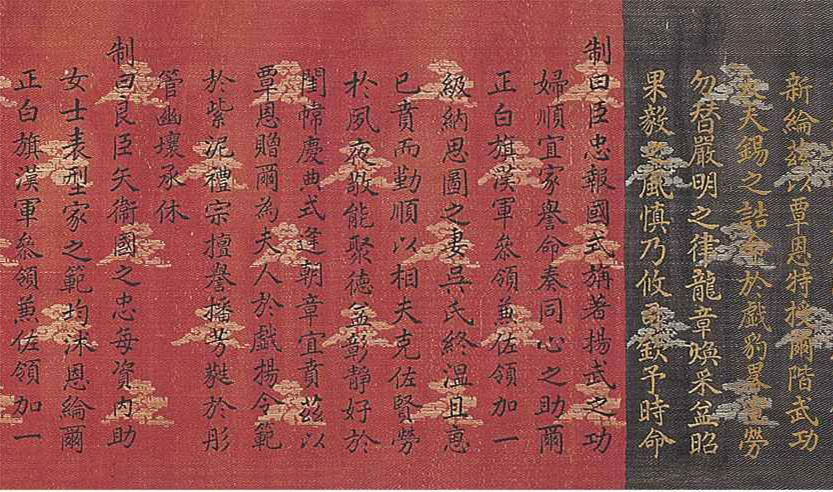 新綸茲以覃恩特授爾階武功
夫錫之誥命於戲豹畧勞
勿替嚴明之律龍章煥采益昭
果毅之風慎乃攸司欽予時命
制曰臣忠報國式旃著揚武之功
婦順宜家譽命奏同心之助爾
正白旗漢軍叅領兼佐領加一
級納恩圖之妻吳氏終溫且惠
已賁而勤順以相夫克佐賢勞
於夙夜敬能聚德益彰靜好於
閨幃慶典式逢朝章宜賁茲以
覃恩贈爾為夫人於戲揚令範
於紫泥禮宗擅譽播芳蕤於彤
管幽壤承休
制曰良臣矢衛國之忠每資內助
女士表型家之範均沐恩綸爾
正白旗漢軍叅領兼佐領加一